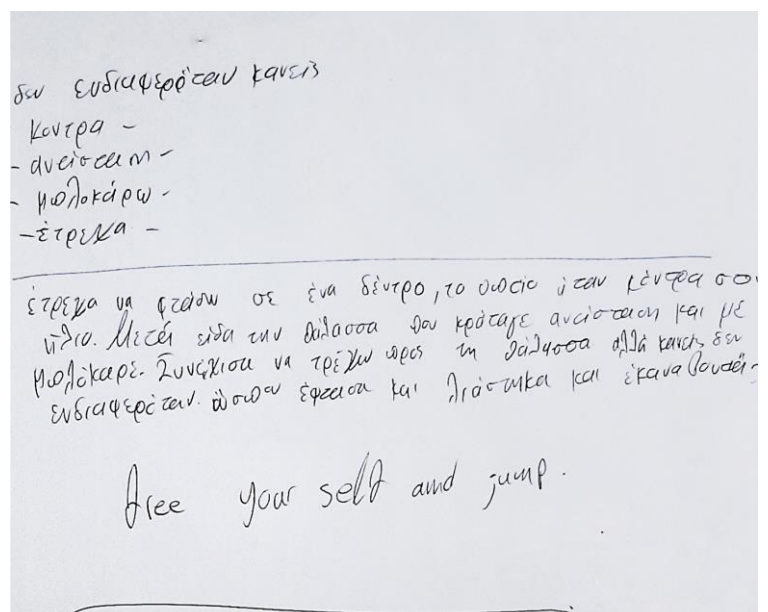 δεν ενδιαφερόταν κανείς
κοντρα -
- αντίσταση -
- μπλοκάρω -
- έτρεχα -
έτρεχα να φτάσω σε ένα δέντρο, το οποίο ήταν κόντρα στον
ήλιο. Μετά είδα την θάλασσα που κρόταγε αντίσταση και με
μπλόκαρε. Συνέχισα να τρέχω προς τη θάλασσα αλλά κανείς δεν
ενδιαφερόταν. ώσπου έφτασα και λιάστηκα και έκανα
free your self and jump.